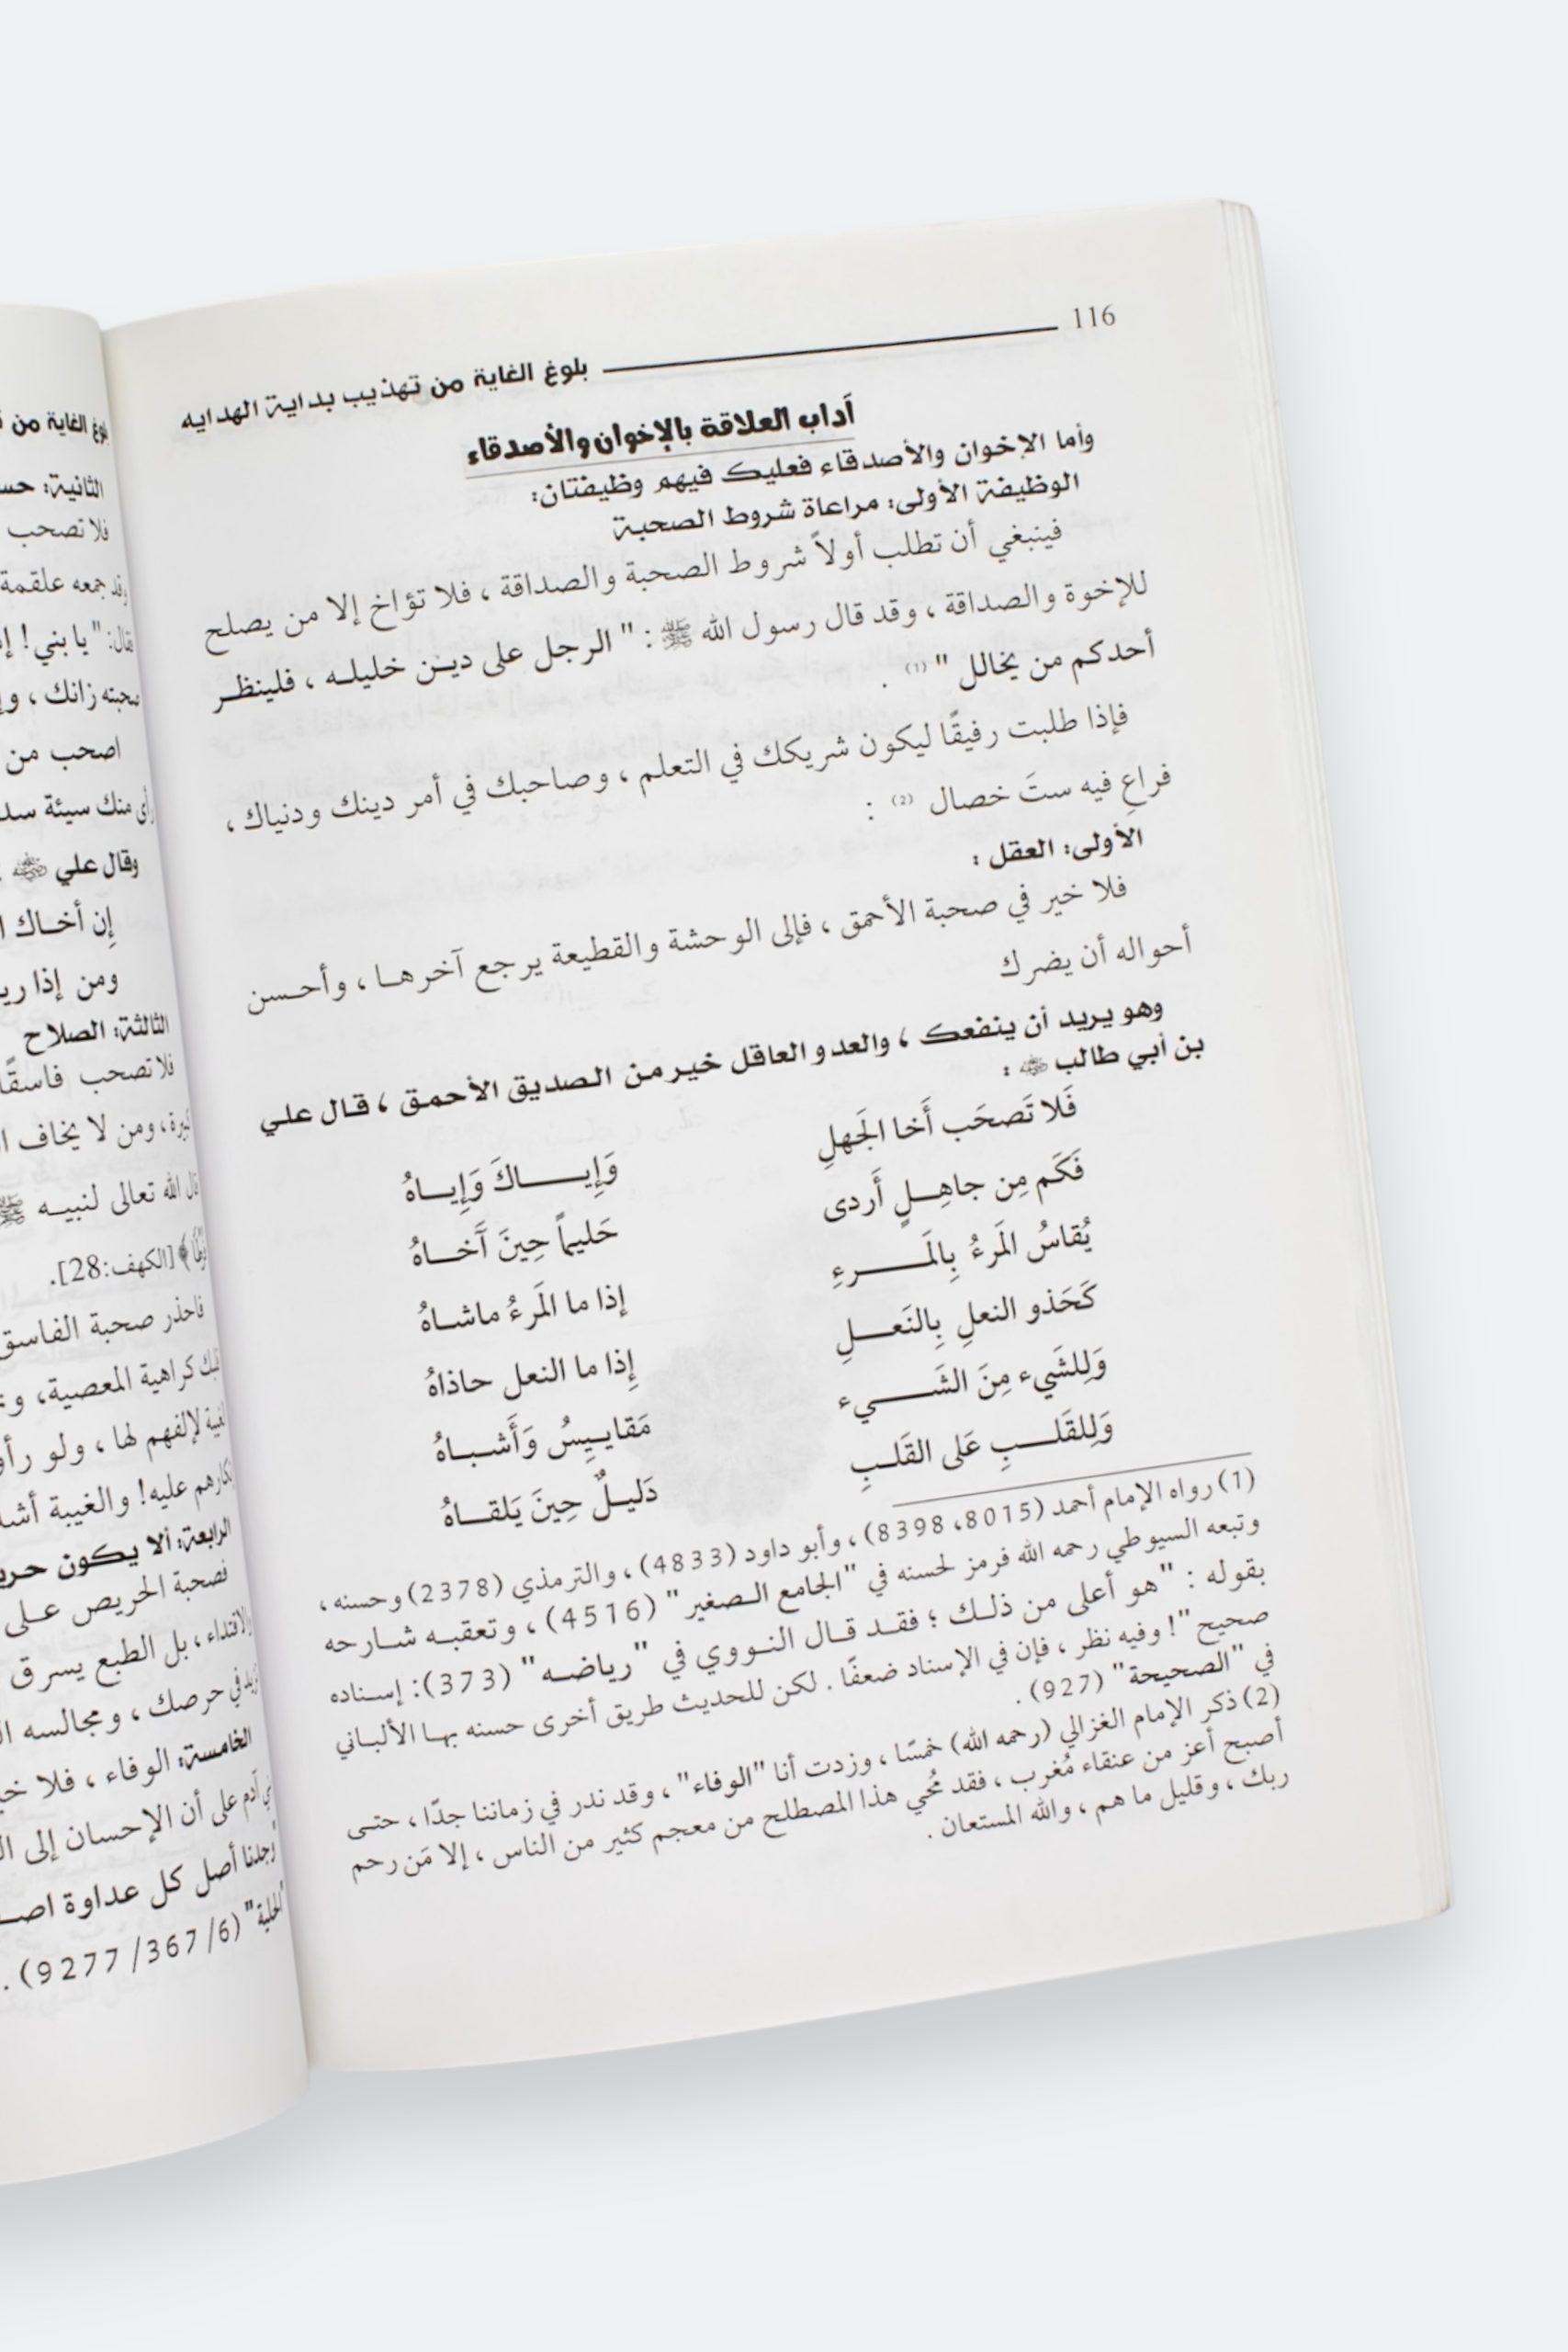 116
بلوغ الغاية من تهذيب بداية الهدايه
آداب العلاقة بالإخوان والأصدقاء
وأما الإخوان والأصدقاء فعليك فيهم وظيفتان:
الوظيفة الأولى: مراعاة شروط الصحبة
فينبغي أن تطلب أولاً شروط الصحبة والصداقة ، فلا تؤاخ إلا من يصلح
للإخوة والصداقة ، وقد قال رسول الله ﷺ : " الرجل على ديـن خليلـه ، فلينظـر
أحدكم من يخالل " (1) .
فإذا طلبت رفيقًا ليكون شريكك في التعلم ، وصاحبك في أمر دينك ودنياك ،
فراعِ فيه ستَ خصال (2) :
الأولى: العقل :
فلا خير في صحبة الأحمق ، فإلى الوحشة والقطيعة يرجع آخرهـا ، وأحـسن
أحواله أن يضرك
وهو يريد أن ينفعك ، والعدو العاقل خير من الصديق الأحمق ، قـال علـي
بن أبي طالب ﵁ :
فَلا تَصحَب أَخا الجَهلِ وَإِيـــــاكَ وَإِيــاهُ
فَكَم مِن جاهِــلٍ أَردى حَليماً حِينَ آَخـــاهُ
يُقاسُ المَرءُ بِالمَـــــرءِ إذا ما المَرءُ ماشــاهُ
كَحَذو النعلِ بِالنَعــــلِ إِذا ما النعل حاذاهُ
وَلِلشَيء مِنَ الشَـــــيء مَقايـيِسُ وَأَشـبــاهُ
وَلِلقَلــــبِ عَلى القَلـبِ دَليـلٌ حِينَ يَلقــاهُ
(1) رواه الإمام أحمد (8015، 8398) ، وأبو داود (4833) ، والترمذي (2378) وحسنه ،
وتبعه السيوطي رحمه الله فرمز لحسنه في "الجامع الـصغير" (4516) ، وتعقبـه شـارحه
بقوله : "هو أعلى من ذلـك ؛ فقـد قـال النـووي في "رياضـه" (373): إسـناده
صحيح "! وفيه نظر ، فإن في الإسناد ضعفًا . لكن للحديث طريق أخرى حسنه بهـا الألبـاني
في "الصحيحة" (927) .
(2) ذكر الإمام الغزالي (رحمه الله) خمسًا ، وزدت أنا "الوفاء" ، وقد ندر في زماننا جدًا ، حتـى
أصبح أعز من عنقاء مُغرب ، فقد مُحي هذا المصطلح من معجم كثير من الناس ، إلا مَن رحم
ربك ، وقليل ما هم ، والله المستعان .
الغاية من
الثانية:
فلا تصحب
جمعه علقمة
فقال: "يا بني!
زانك ،
اصحب من
منك سيئة
وقال علي ﵁
إِن أخـاك
ومن إذا
الثالثة: الصلاح
فلا تصحب فاسقًا
، ومن لا يخاف
الله تعالى لنبيـه ﷺ
[الكهف:28].
فاحذر صحبة الفاسق
كراهية المعصية،
لإلفهم لها ، ولو
عليه! والغيبة
الرابعة: ألا يكون
فصحبة الحريص عـلى
، بل الطبع يسرق
في حرصك ، ومجالسه
الخامسة: الوفاء ، فلا
آدم على أن الإحسان إلى
وجدنا أصل كل عداوة
(6/ 367/ 9277) .